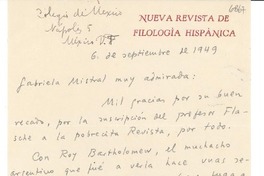 Colegio de México
Nápoles 5
México D.F
NUEVA REVISTA DE
FILOLOGÍA HISPÁNICA
6. de septiembre de 1949
Gabriela Mistral muy admirada:
Mil gracias por su buen
recado, por la inscripción del profesor Fla-
sche a la pobrecita Revista, por todo.
Con Roy Bartholomew, el muchacho
argentino que fué a verla hace unas se-